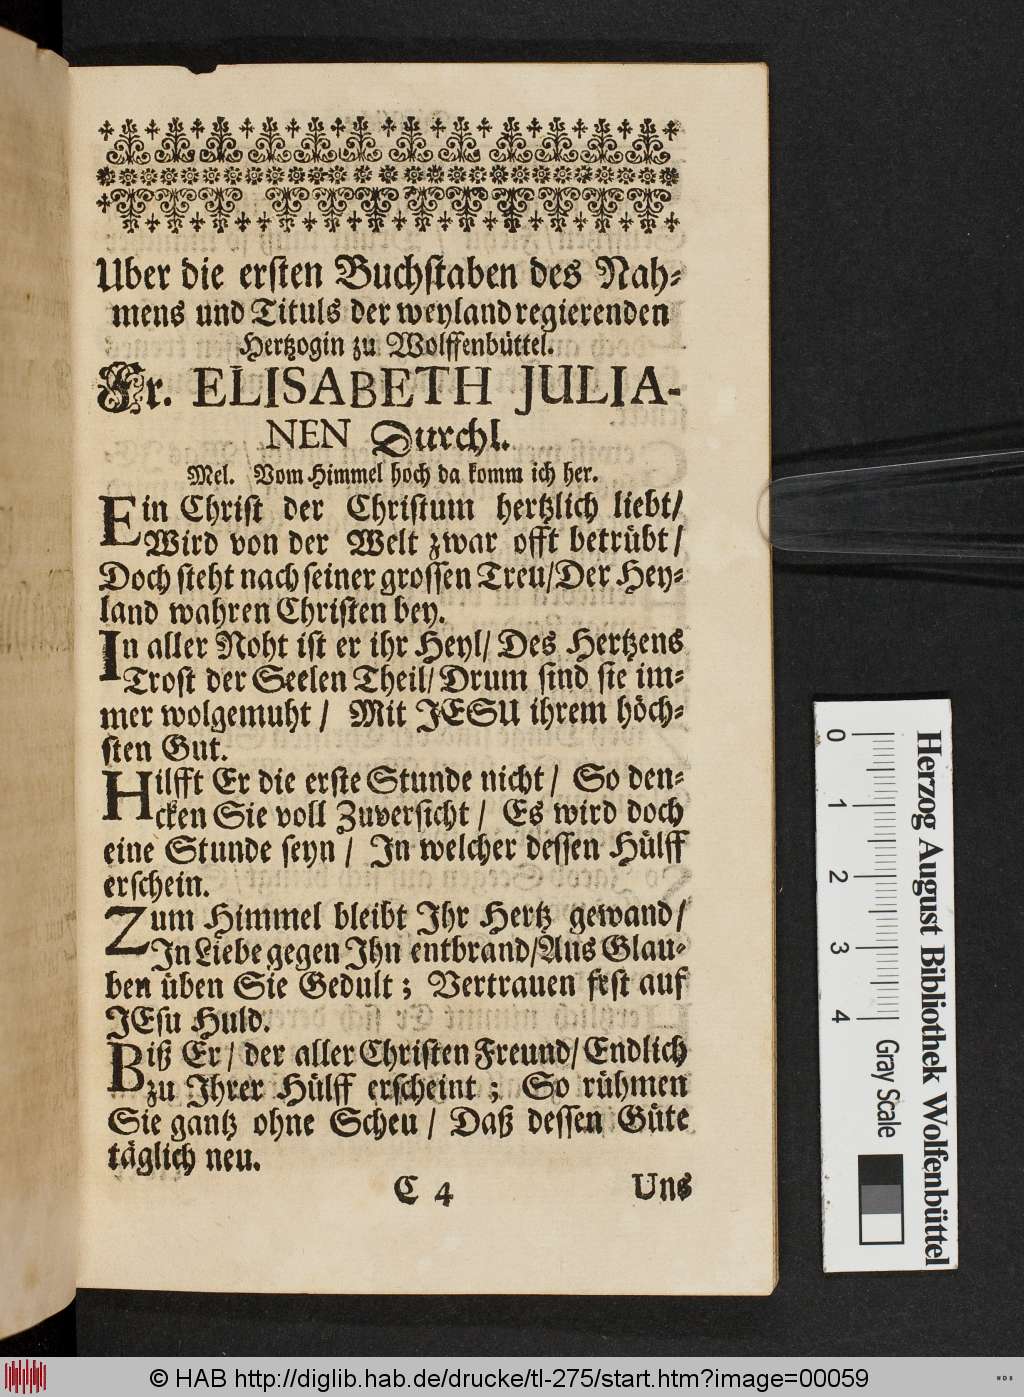 Uber die ersten Buchstaben des Nah-
mens und Tituls der weyland regierenden
Hertzogin zu Wolffenbüttel.
Fr. ELISABETH JULIA-
NEN Durchl.
Mel. Vom Himmel hoch da komm ich her.
Ein Christ der Christum hertzlich liebt/
Wird von der Welt zwar offt betrübt/
Doch steht nach seiner grossen Treu/Der Hey-
land wahren Christen bey.
In aller Noht ist er ihr Heyl/ Des Hertzens
Trost der Seelen Theil/ Drum sind sie im-
mer wolgemuht / Mit JESU ihrem höch-
sten Gut.
Hilfft Er die erste Stunde nicht / So den-
cken Sie voll Zuversicht / Es wird doch
eine Stunde seyn / In welcher dessen Hülff
erschein.
Zum Himmel bleibt Ihr Hertz gewand/
In Liebe gegen Ihn entbrand/Aus Glau-
ben üben Sie Gedult; Vertrauen fest auf
JEsu Huld.
Biß Er / der aller Christen Freund/ Endlich
zu Ihrer Hülff erscheint; So rühmen
Sie gantz ohne Scheu / Daß dessen Güte
täglich neu.
C 4 Uns
Herzog August Bibliothek Wolfenbüttel
0 1 2 3 4 Gray Scale
© HAB http://diglib.hab.de/drucke/tl-275/start.htm?image=00059